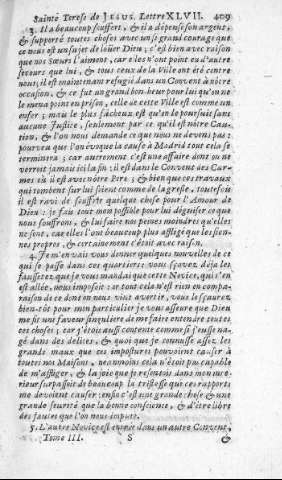 Sainte Terese de JESUS. Lettre XLVII. 409
3. Il a beaucoup souffert, & il a dépensé son argent,
& supporté toutes choses avec un si grand courage que
ce nous est un sujet de loüer Dieu; c'est bien avec raison
que nos Sœurs l'aiment, car elles n'ont point eu d'autre
secours que luy, & tous ceux de la Ville ont été contre
nous; il est maintenant refugié dans un Convent à nôtre
occasion, & ce fut un grand bon-heur pour lui qu'on ne
le mena point en prison, celle de cette Ville est comme un
enfer; mais le plus fâcheux est qu'on le poursuit sans
aucune Justice, seulement par ce qu'il est nôtre Cau-
tion, & l'on nous demande ce que nous ne devons pas:
pourveu que l'on évoque la cause à Madrid tout cela se
terminera; car autrement c'est une affaire dont on ne
verroit jamais ici la fin: il est dans le Convent des Car-
mes où il est avec nôtre Pere; & bien que ces travaux
qui tombent sur lui soient comme de la gresle, toutefois
il est ravi de souffrir quelque chose pour l'Amour de
Dieu: je fais tout mon possible pour lui déguiser ce que
nous souffrons, & lui faire nos peines moindres qu'elles
ne sont, car elles l'ont beaucoup plus affligé que les sien-
nes propres, & certainement c'étoit avec raison.
4. Je m'en vais vous donner quelques nouvelles de ce
qui se passe dans ces quartiers: vous sçavez déja les
faussetez que je vous manday que cette Novice, qui s'en
est allée, nous imposoit: or tout cela n'est rien en compa-
raison de ce dont on nous vint avertir, vous le sçaurez
bien-tôt pour mon particulier je vous asseure que Dieu
me fit une faveur singuliere de me faire entendre toutes
ces choses; car j'étois aussi contente comme si j'eusse na-
gé dans des delices, & quoi que je connusse assez les
grands maux que ces impostures pouvoient causer à
toutes nos Maisons, neanmoins cela n'étoit pas capable
de m'affliger, & la joie que je resentois dans mon inte-
rieur surpassoit de beaucoup la tristesse que ces rapports
me devoient causer: enfin c'est une grande chose & une
grande seureté que la bonne conscience, & d'être libre
des fautes que l'on nous impute.
5. L'autre Novice est entrée dans un autre Convent,
Tome III. S &